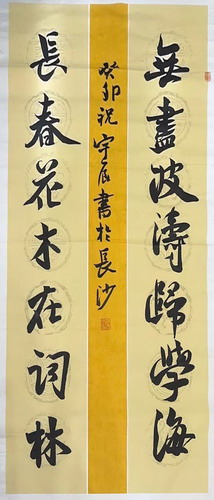 無盡波濤歸學海
長春花木在詞林
癸卯祝宇辰書於長沙